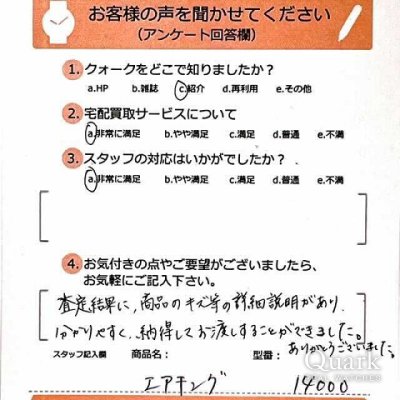 お客様の声を聞かせてください
（アンケート回答欄）
1. クォークをどこで知りましたか？
a.HP b.雑誌 c.紹介 d.再利用 e.その他
2. 宅配買取サービスについて
a.非常に満足 b.やや満足 c.満足 d.普通 e.不満
3. スタッフの対応はいかがでしたか？
a.非常に満足 b.やや満足 c.満足 d.普通 e.不満
4. お気付きの点やご要望がございましたら、
お気軽にご記入下さい。
査定結果に、商品のキズ等の詳細説明があり、
分かりやすく、納得してお渡しすることができました。
ありがとうございました。
スタッフ記入欄 商品名： 型番：
エアキング 14000
Quark
WATCHES